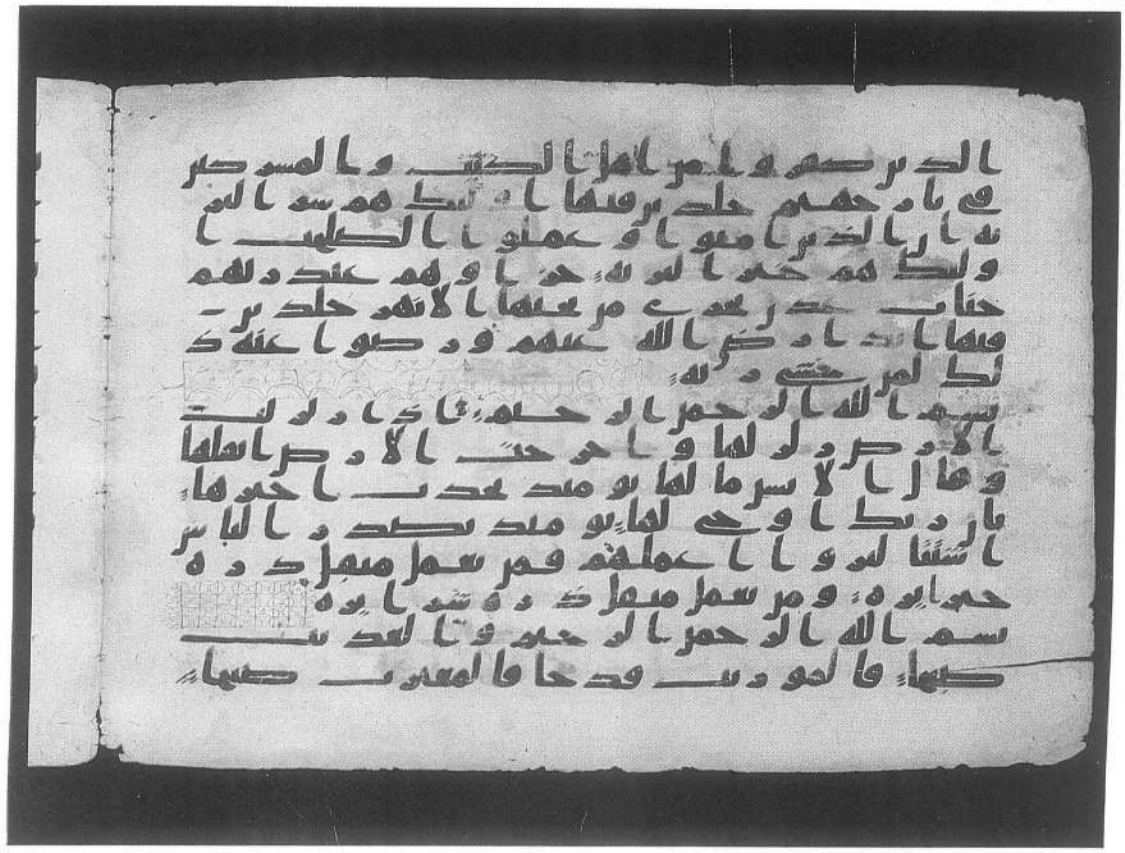 الذين كفروا من اهل الكتب والمشركين
في نار جهنم خلدين فيها اوليك هم شر البر
ية ان الذين امنوا وعملوا الصلحت ا
وليك هم خير البرية جزاوهم عند ربهم
جنات عدن تجري من تحتها الانهر خلدين
فيها ابدا رضي الله عنهم ورضوا عنه ذ
لك لمن خشي ربه
بسم الله الرحمن الرحيم اذا زلزلت
الارض زلزلها واخرجت الارض اثقلها
وقال الانسن ما لها يومئذ تحدث اخبرها
بان ربك اوحى لها يومئذ يصدر الناس
اشتتا ليروا اعملهم فمن يعمل مثقل ذرة
خيرا يره ومن يعمل مثقل ذرة شرا يره
بسم الله الرحمن الرحيم والعديت
ضبحا فالموريت قدحا فالمغيرت صبحا